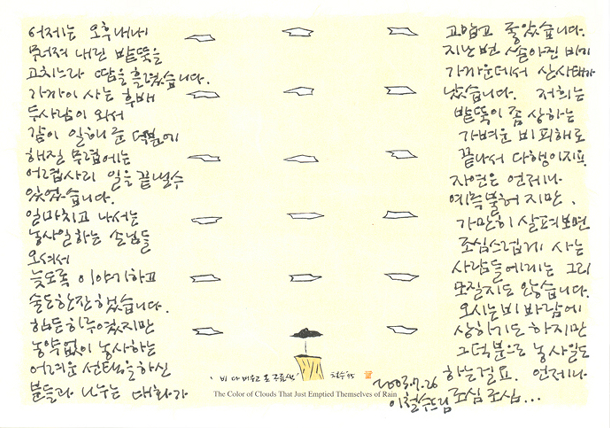 어제는 오후내내
무너져 내린 밭뚝을
고치느라 땀을 흘렸습니다.
가까이 사는 후배
두사람이 와서
같이 일해 준 덕분에
해질 무렵에는
어렵사리 일을 끝낼수
있었습니다.
일마치고 나서는
농사일하는 손님들
오셔서
늦도록 이야기하고
술도한잔 했습니다.
힘든하루였지만
농약없이 농사하는
어려운 선택을하신
분들과 나누는 대화가
고맙고 좋았습니다.
지난번 쏟아진 비에
가까운데서 산사태가
났습니다. 저희는
밭뚝이 좀 상하는
가벼운 비피해로
끝나서 다행이지요.
자연은 언제나
예측불허 지만,
가만히 살펴보면
조심스럽게 사는
사람들에게는 그리
모질지도 않습니다.
오시는 비 바람에
상하기도 하지만
그덕분으로 농사일도
하는걸요. 언제나
조심 조심...
2003.7.26
이철수드림
'비 다 비우고 온 구름색' 철수
The Color of Clouds That Just Emptied Themselves of Rain